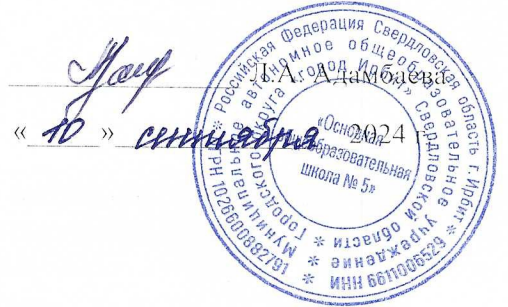 Л.А. Адамбаева
« 10 » сентября 2024 г.
* Российская Федерация Свердловская область г. Ирбит *
Муниципальное автономное общеобразовательное учреждение *
Городского округа «город Ирбит» Свердловской области *
«Основная
общеобразовательная
школа № 5»
ОГРН 1026600882791
* ИНН 6611006529 *